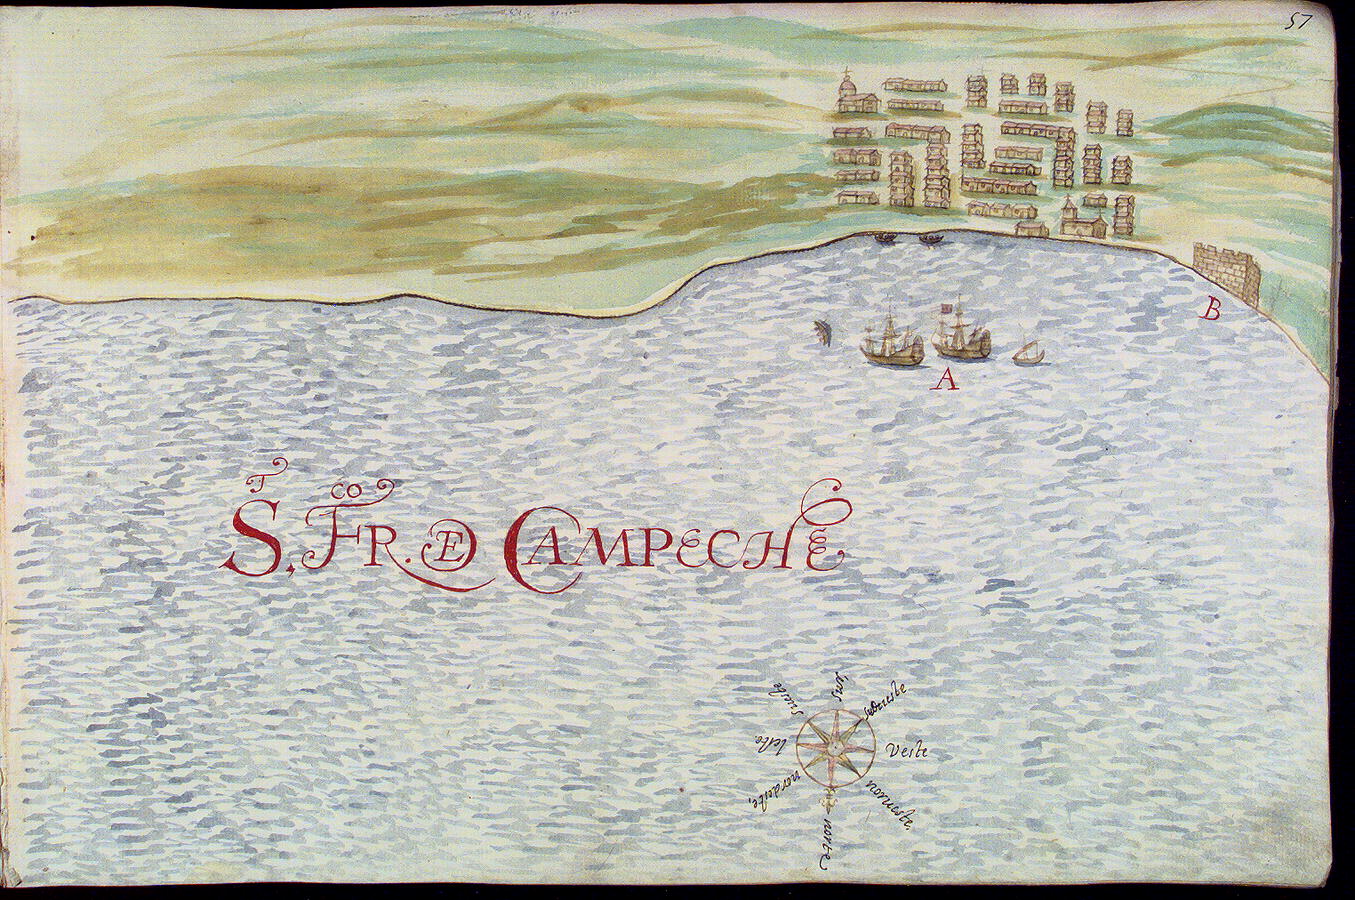 57
B
A
S.T FR.CO DE CAMPECHE
sus
sueste
sorueste
leste
veste
nordeste,
noroueste,
norte